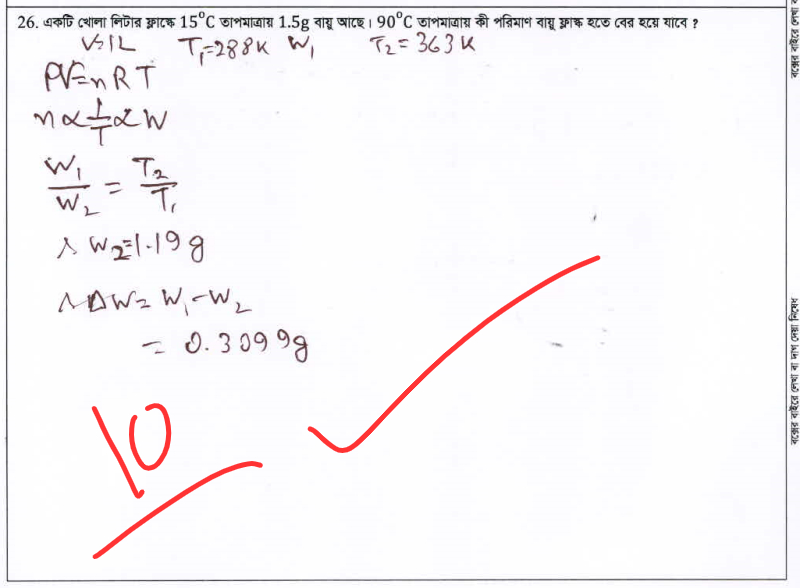 26. একটি খোলা লিটার ফ্লাস্কে 15⁰C তাপমাত্রায় 1.5g বায়ু আছে। 90⁰C তাপমাত্রায় কী পরিমাণ বায়ু ফ্লাস্ক হতে বের হয়ে যাবে ?
V=1L T₁=288K W₁ T₂=363K
PV=nRT
n∝1/T∝W
W₁/W₂ = T₂/T₁
∴ W₂=1.19g
∴ ΔW= W₁-W₂
= 0.3099g
10
বক্সের বাইরে লেখা বা দাগ দেয়া নিষেধ
বক্সের বাইরে লেখা ব